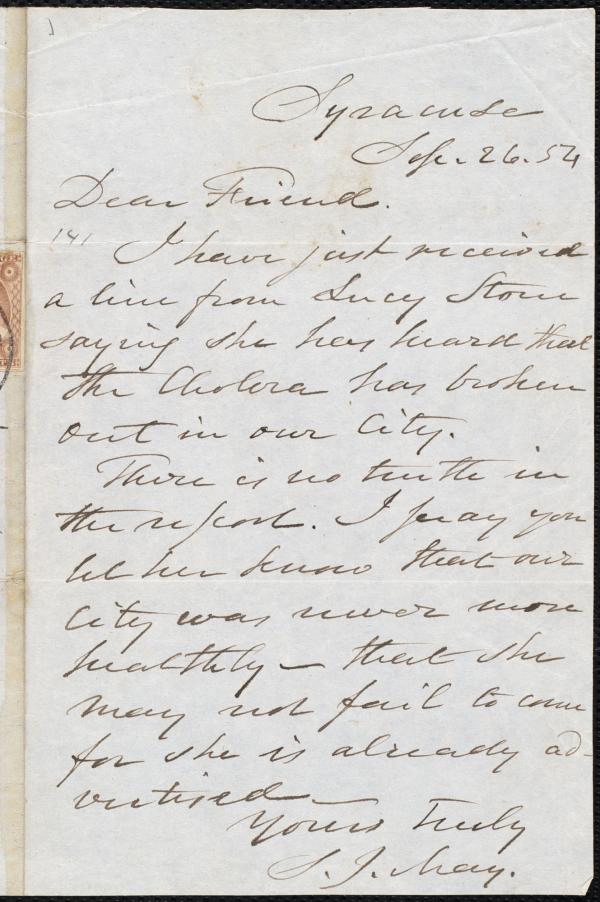 Syracuse
Sep. 26. 54
Dear Friend.
I have just received
a line from Lucy Stone
saying she has heard that
the Cholera has broken
out in our City.
There is no truth in
the report. I pray you
let her know that our
City was never more
healthly — that she
may not fail to come
for she is already ad-
vertised —
Yours Truly
S. J. May.